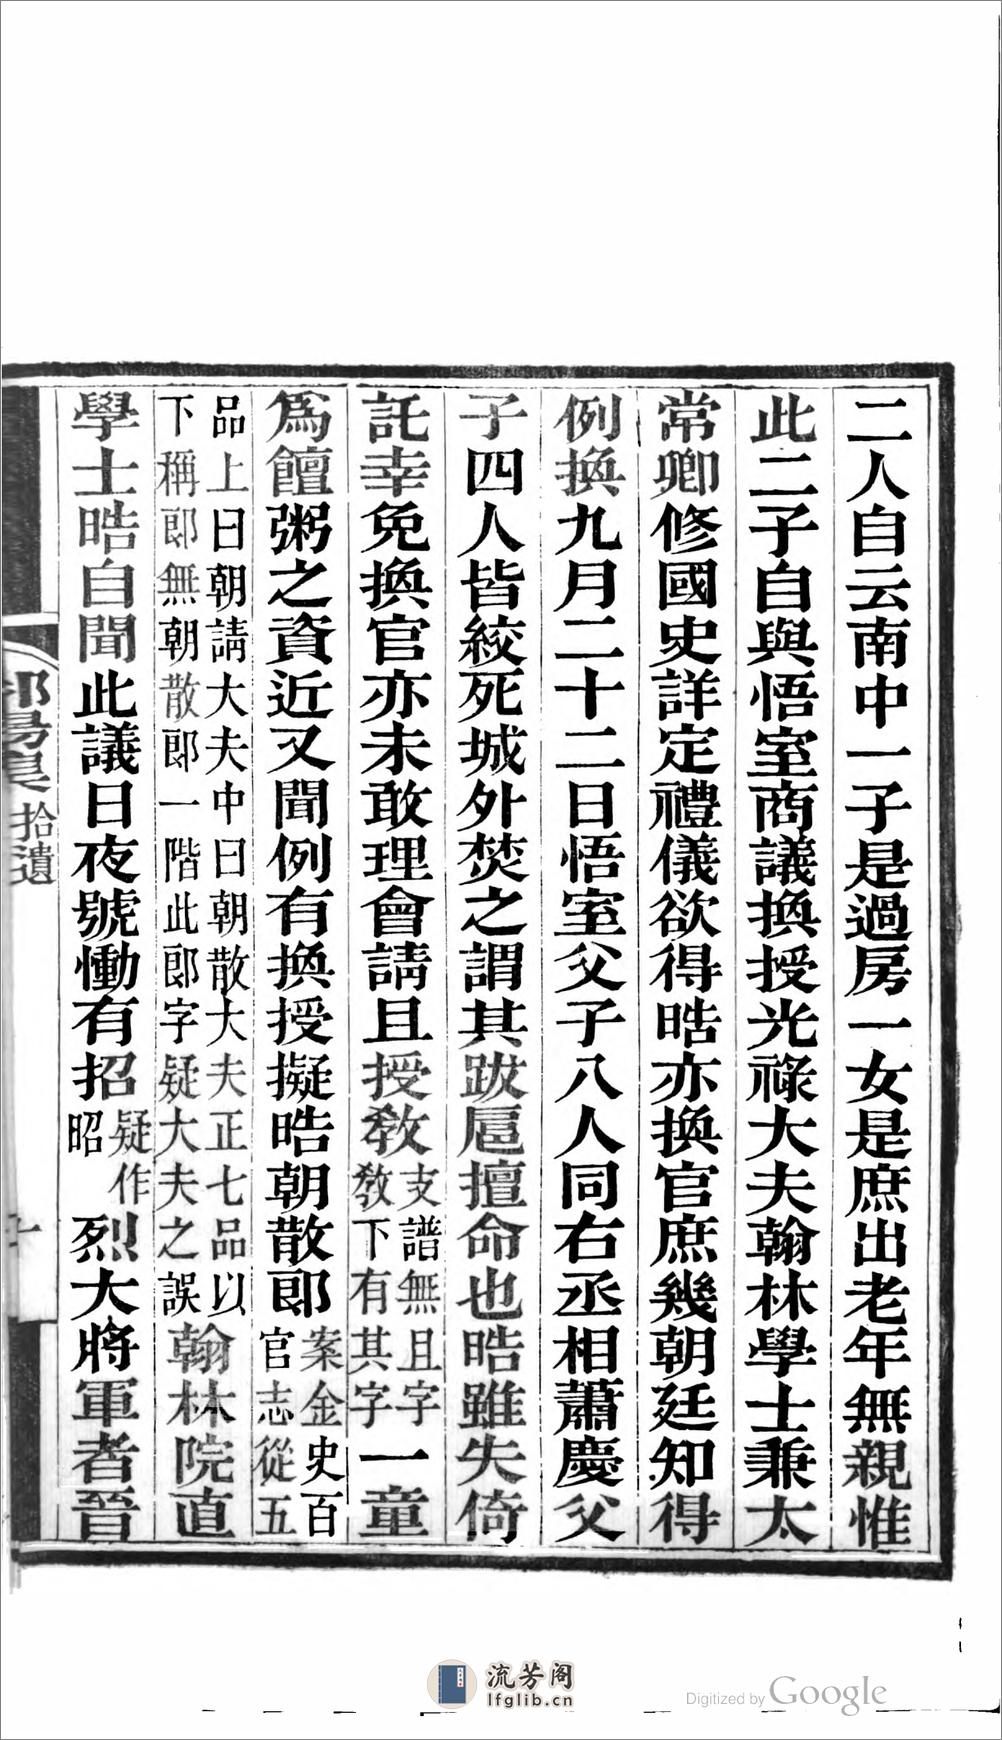 二人自云南中一子是過房一女是庶出老年無親惟
此二子自與悟室商議換授光祿大夫翰林學士兼太
常卿修國史詳定禮儀欲得晧亦換官庶幾朝廷知得
例換九月二十二日悟室父子八人同右丞相蕭慶父
子四人皆絞死城外焚之謂其跋扈擅命也晧雖失倚
託幸免換官亦未敢理會請且授敎支譜無且字敎下有其字一童
爲饘粥之資近又聞例有換授擬晧朝散郎案金史百官志從五
品上曰朝請大夫中曰朝散大夫正七品以下稱郎無朝散郎一階此郎字疑大夫之誤翰林院直
學士晧自聞此議日夜號慟有招疑作昭烈大將軍者晉
鄱陽集 拾遺
十
流芳阁
lfglib.cn
Digitized by Google